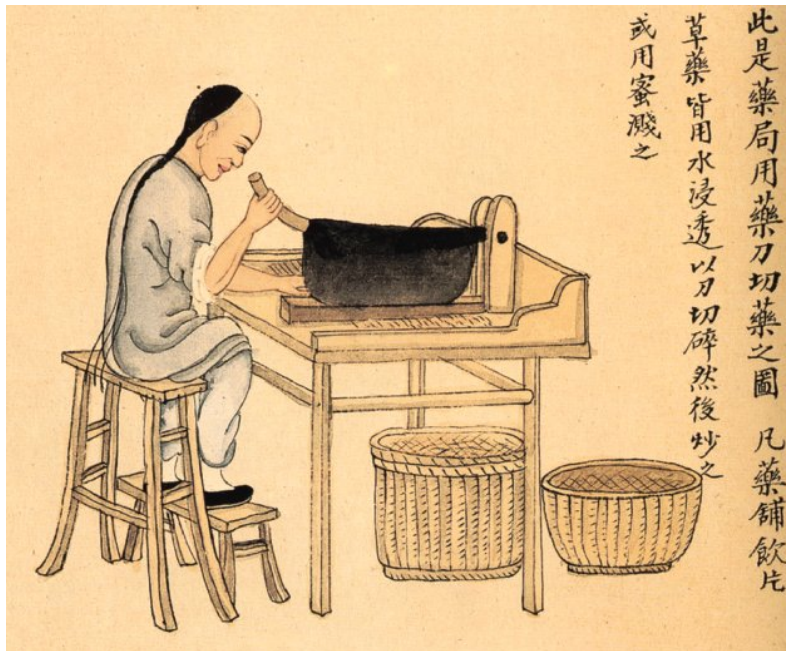 此是藥局用藥刀切藥之圖 凡藥舖飲片
草藥皆用水浸透以刀切碎然後炒之
或用蜜濺之